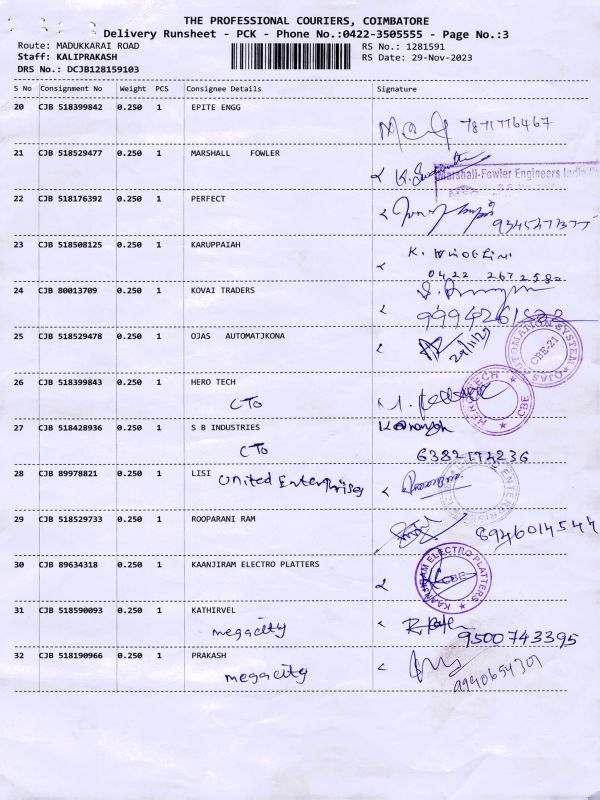 THE PROFESSIONAL COURIERS, COIMBATORE
Delivery Runsheet - PCK - Phone No.:0422-3505555 - Page No.:3
Route: MADUKKARAI ROAD
Staff: KALIPRAKASH
DRS No.: DCJB128159103
RS No.: 1281591
RS Date: 29-Nov-2023
S No Consignment No Weight PCS Consignee Details Signature
20 CJB 518399842 0.250 1 EPITE ENGG
7871776467
21 CJB 518529477 0.250 1 MARSHALL FOWLER
Marshall-Fowler Engineers India
22 CJB 518176392 0.250 1 PERFECT
23 CJB 518508125 0.250 1 KARUPPAIAH
0422 2672580
24 CJB 80013709 0.250 1 KOVAI TRADERS
25 CJB 518529478 0.250 1 OJAS AUTOMATJKONA
29/11/23
OJAS AUTOMATION SYSTEM
CBE-21
26 CJB 518399843 0.250 1 HERO TECH
CTO
CBE
27 CJB 518428936 0.250 1 S B INDUSTRIES
CTO
28 CJB 89978821 0.250 1 LISI United Enterprises
29 CJB 518529733 0.250 1 ROOPARANI RAM
8946014544
30 CJB 89634318 0.250 1 KAANJIRAM ELECTRO PLATTERS
KAANJIRAM ELECTRO PLATTERS
CBE
31 CJB 518590093 0.250 1 KATHIRVEL
megacity
9500743395
32 CJB 518190966 0.250 1 PRAKASH
megacity
9940654301